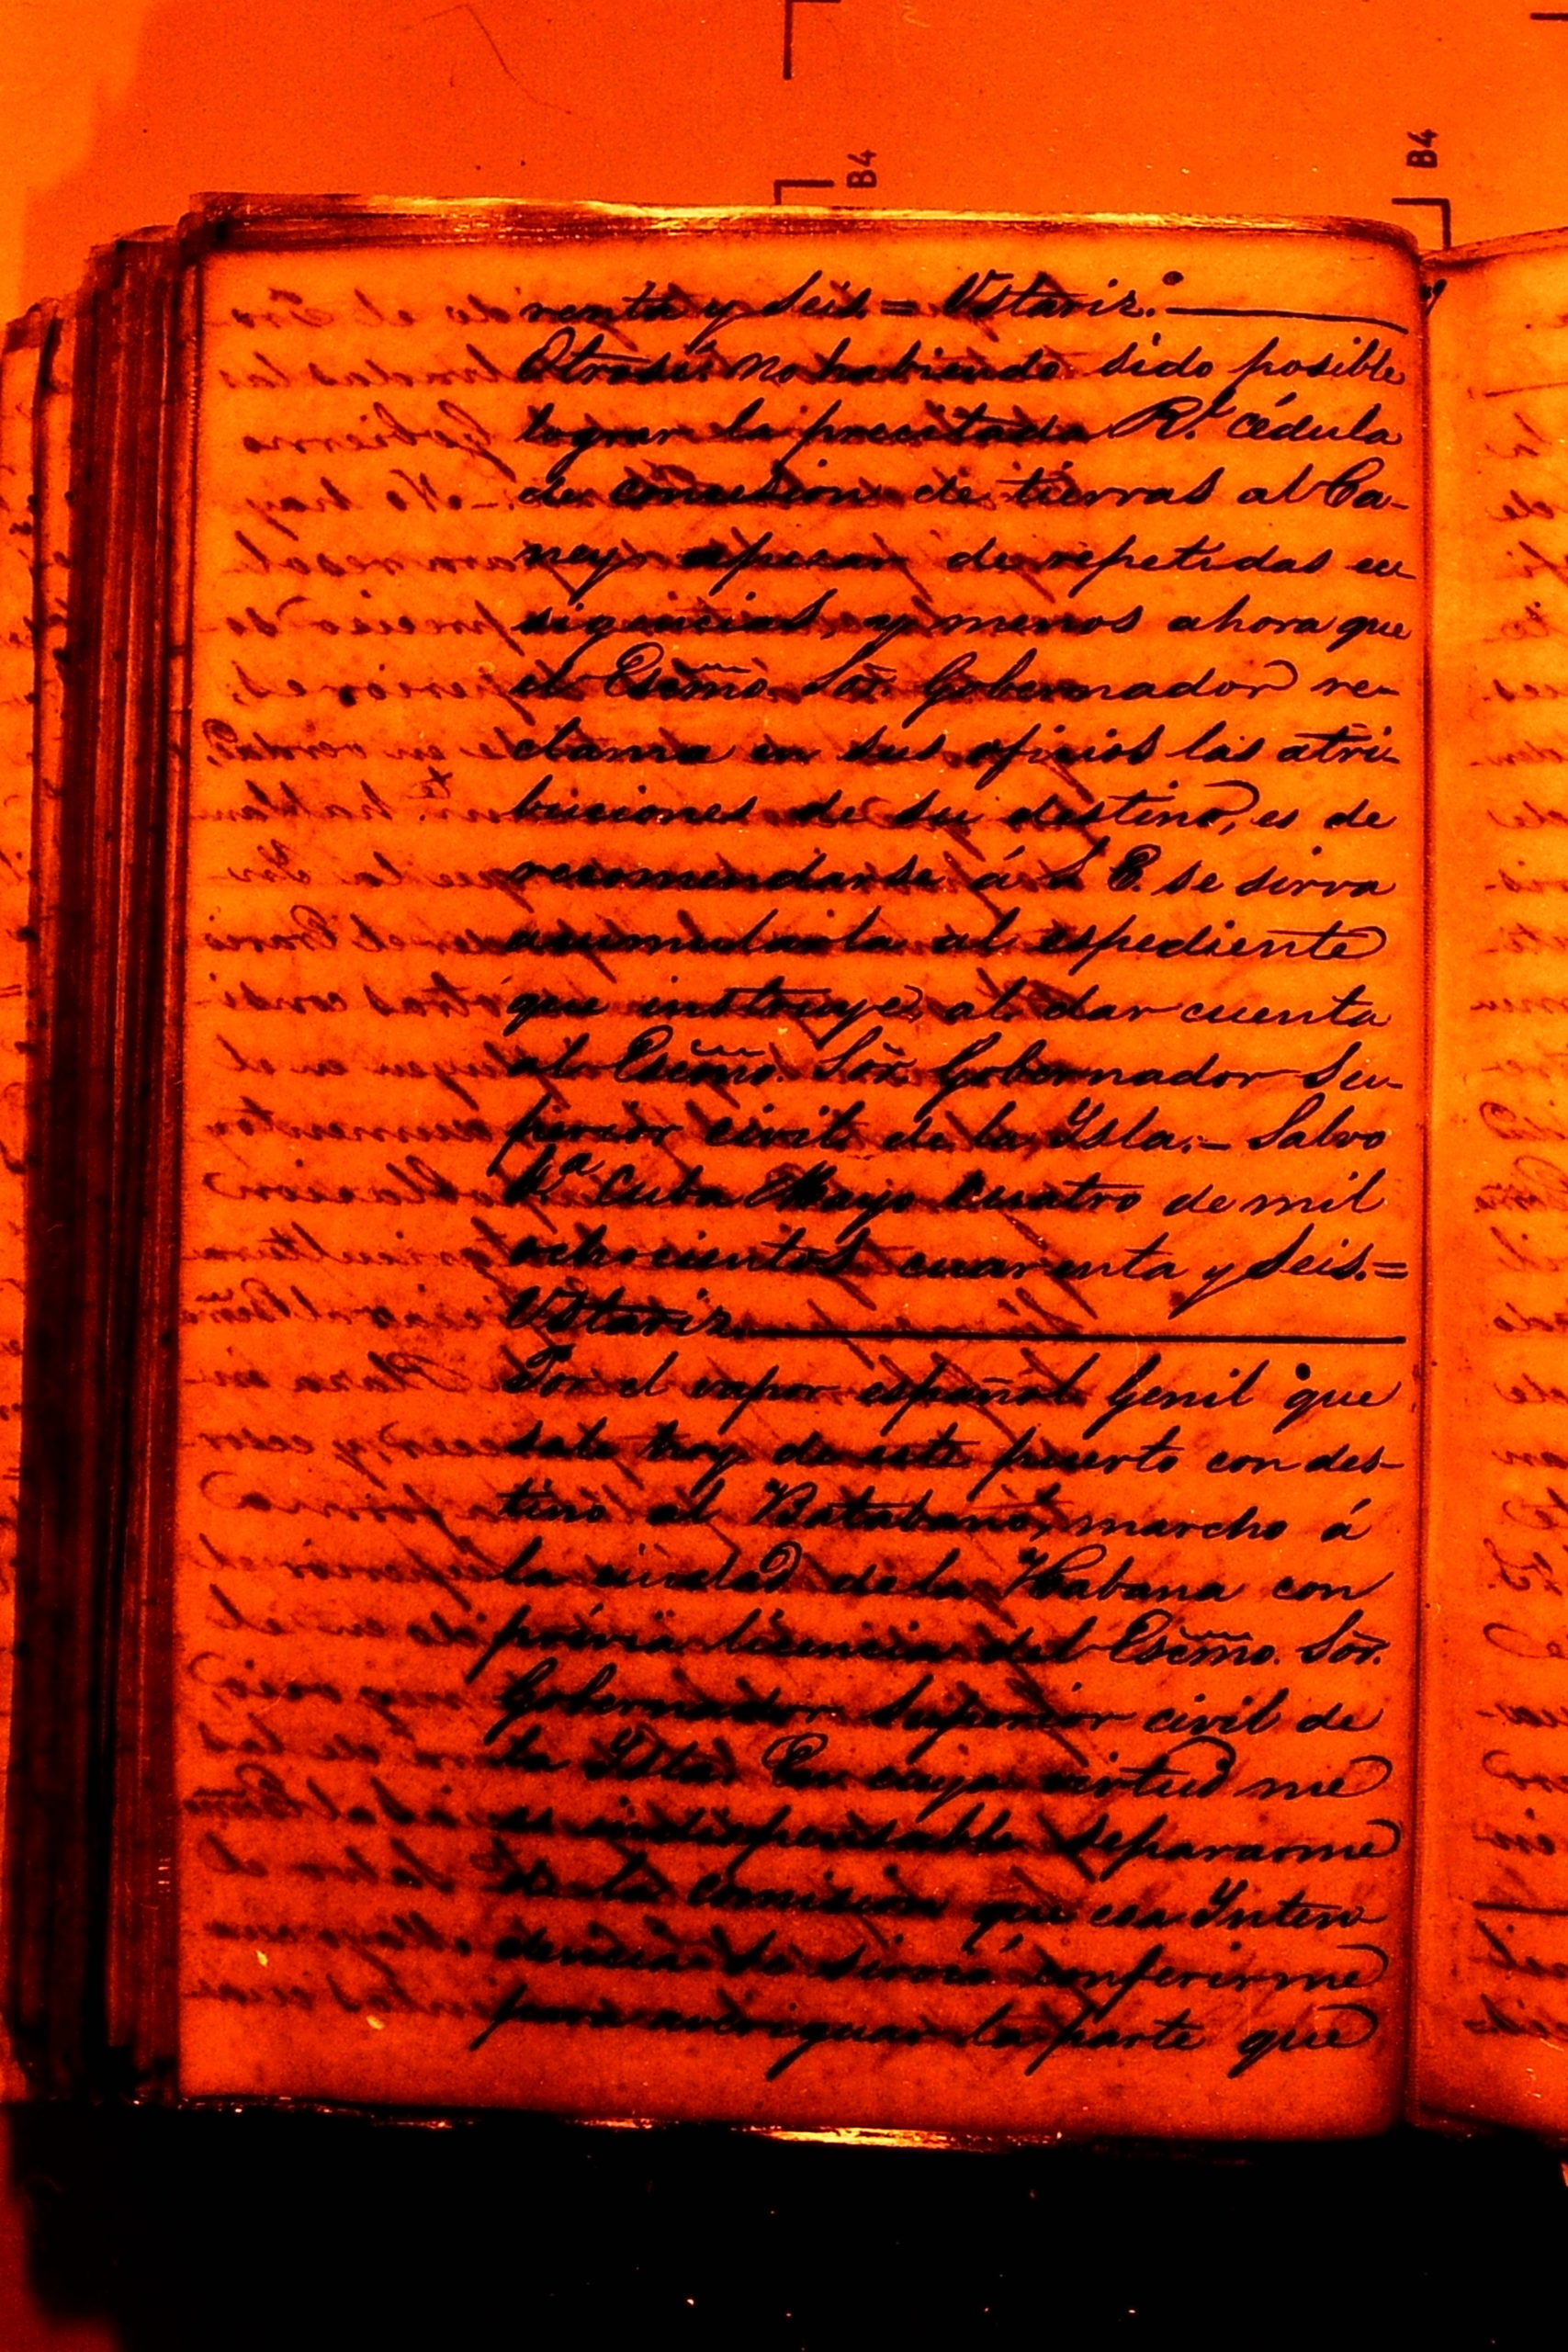 B4
B4
renta y seis.= Ustariz.
Otrosí: No habiendo sido posible
lograr la precitada Rl. cédula
de concesion de tierras al Ca-
ney apesar de repetidas ec-
sigencias, y menos ahora que
el Escmo. Sor. Gobernador re-
clama en sus oficios las atri-
buciones de su destino, es de
recomendarse á S. E. se sirva
acumularla al espediente
que instruye, al dar cuenta
al Escmo. Sor. Gobernador Su-
perior civil de la Ysla.- Salvo
Cuba Mayo cuatro de mil
ochocientos cuarenta y seis.=
Ustariz.
Por el vapor español Genil que
sale hoy de este puerto con des-
tino al Batabanó, marcho á
la ciudad de la Habana con
prévia licencia del Escmo. Sor.
Gobernador Superior civil de
la Ysla. En cuya virtud me
es indispensable separarme
de la comision que esa Inten-
dencia se sirvió conferirme
para averiguar la parte que